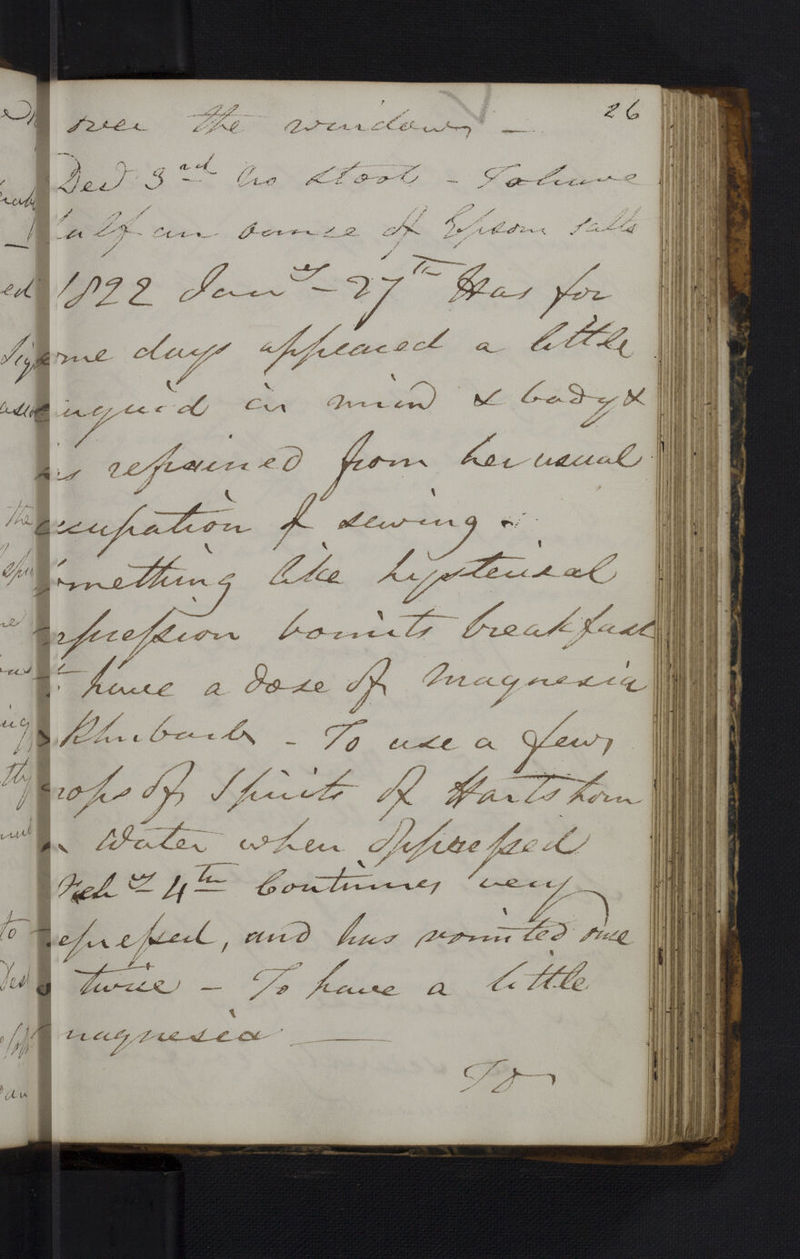 26
over the windows -
Decr 3rd No stool - To have
half an ounce of Epsom salts
1822 Jany - 27th Has for
some days appeared a little
languid in mind & body &
has refrained from her usual
occupation of sewing -
something like hysterical
depression vomits breakfast
To have a dose of Magnesia
& Rhubarb - To use a few
drops of Spirits of Hartshorn
in Water when oppressed
Feby 4th Continues very
depressed, and has vomited once
or twice - To have a little
magnesia
To